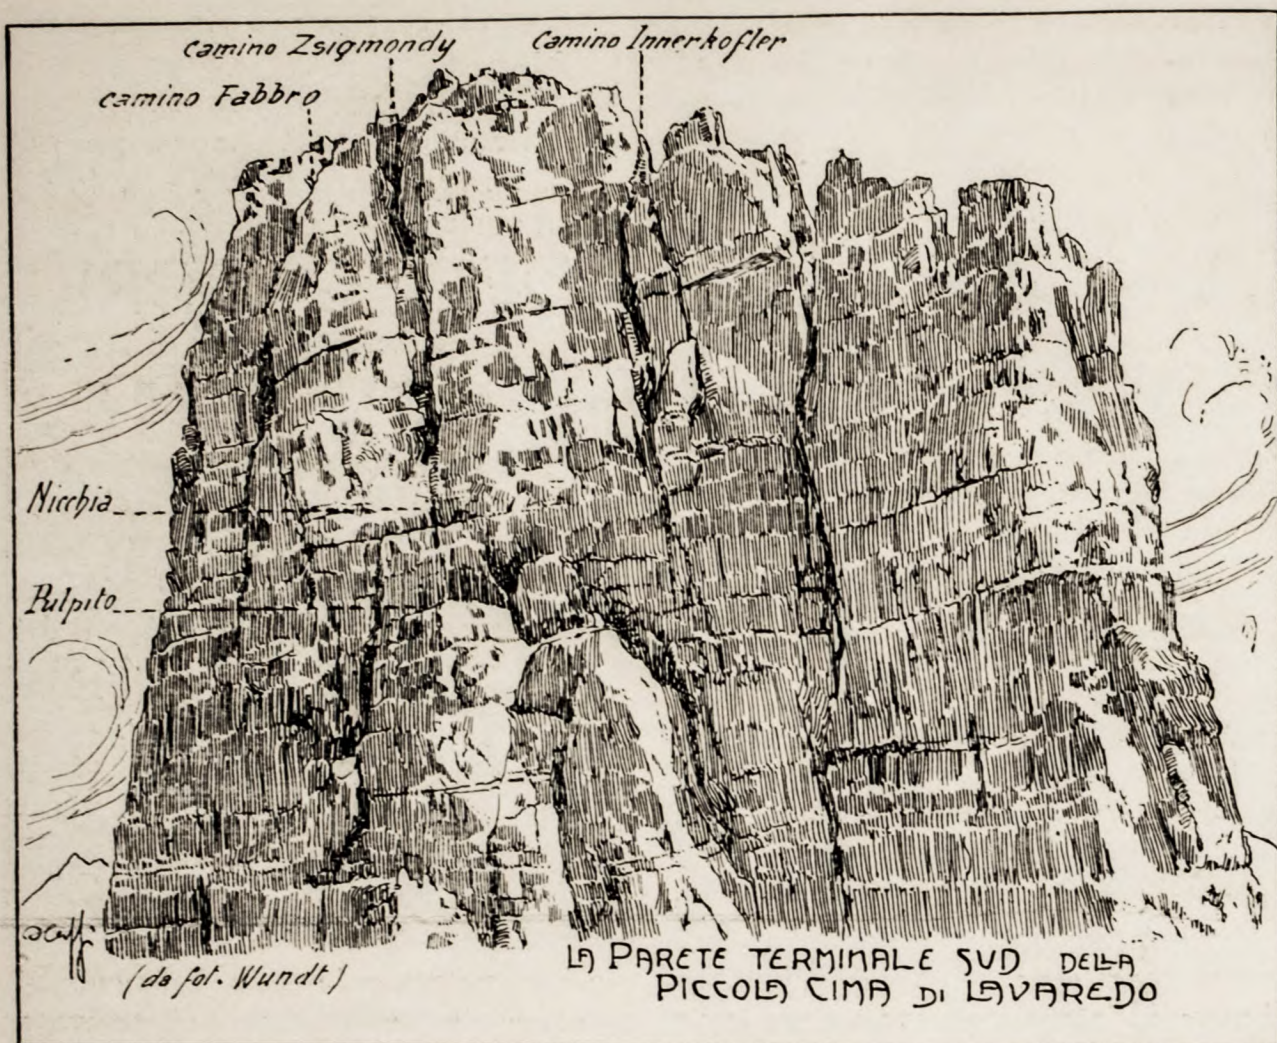 camino Zsigmondy
camino Innerkofler
camino Fabbro
Nicchia
Pulpito
(da fot. Wundt)
LA PARETE TERMINALE SUD DELLA
PICCOLA CIMA DI LAVAREDO